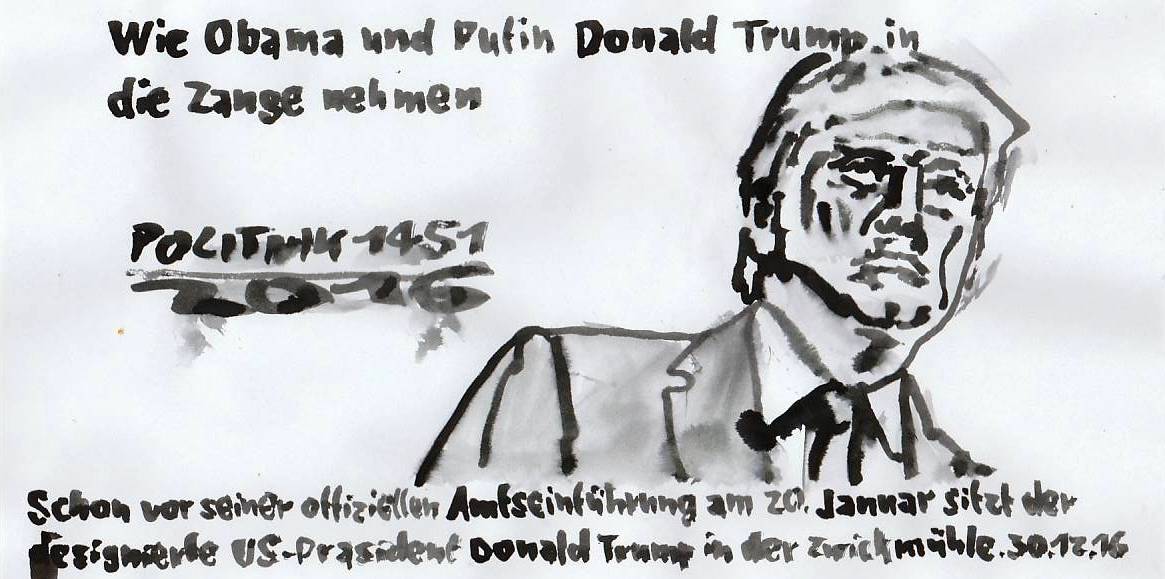 Wie Obama und Putin Donald Trump in
die Zange nehmen
POLITNIK 1451
2016
Schon vor seiner offiziellen Amtseinführung am 20. Januar sitzt der
designierte US-Präsident Donald Trump in der Zwickmühle.30.12.16